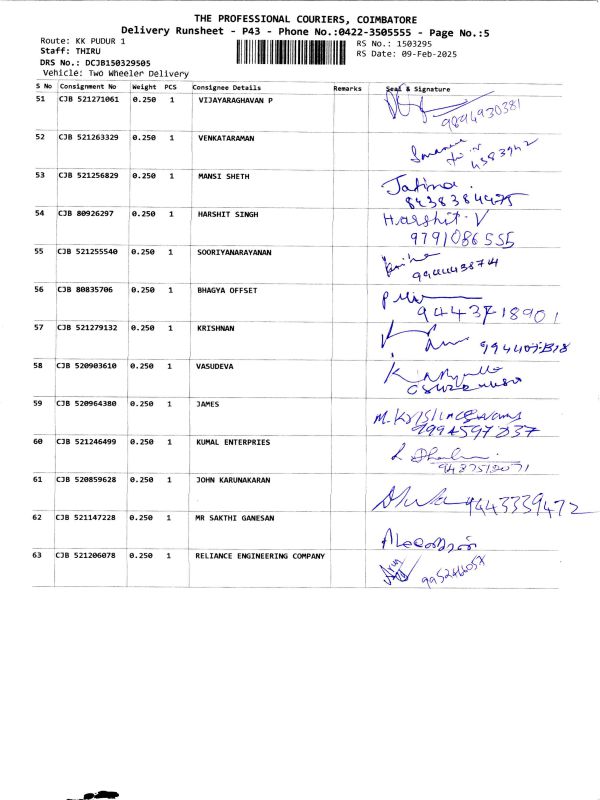 THE PROFESSIONAL COURIERS, COIMBATORE
Delivery Runsheet - P43 - Phone No.:0422-3505555 - Page No.:5
Route: KK PUDUR 1
Staff: THIRU
DRS No.: DCJB150329505
Vehicle: Two Wheeler Delivery
RS No.: 1503295
RS Date: 09-Feb-2025
S No Consignment No Weight PCS Consignee Details Remarks Seal & Signature
51 CJB 521271061 0.250 1 VIJAYARAGHAVAN P
9894930381
52 CJB 521263329 0.250 1 VENKATARAMAN
53 CJB 521256829 0.250 1 MANSI SHETH
8438384475
54 CJB 80926297 0.250 1 HARSHIT SINGH Harshit. V
9791086555
55 CJB 521255540 0.250 1 SOORIYANARAYANAN
9944438744
56 CJB 80835706 0.250 1 BHAGYA OFFSET
9443718901
57 CJB 521279132 0.250 1 KRISHNAN
58 CJB 520903610 0.250 1 VASUDEVA
59 CJB 520964380 0.250 1 JAMES
60 CJB 521246499 0.250 1 KUMAL ENTERPRIES
9487512071
61 CJB 520859628 0.250 1 JOHN KARUNAKARAN
9443339472
62 CJB 521147228 0.250 1 MR SAKTHI GANESAN
63 CJB 521206078 0.250 1 RELIANCE ENGINEERING COMPANY